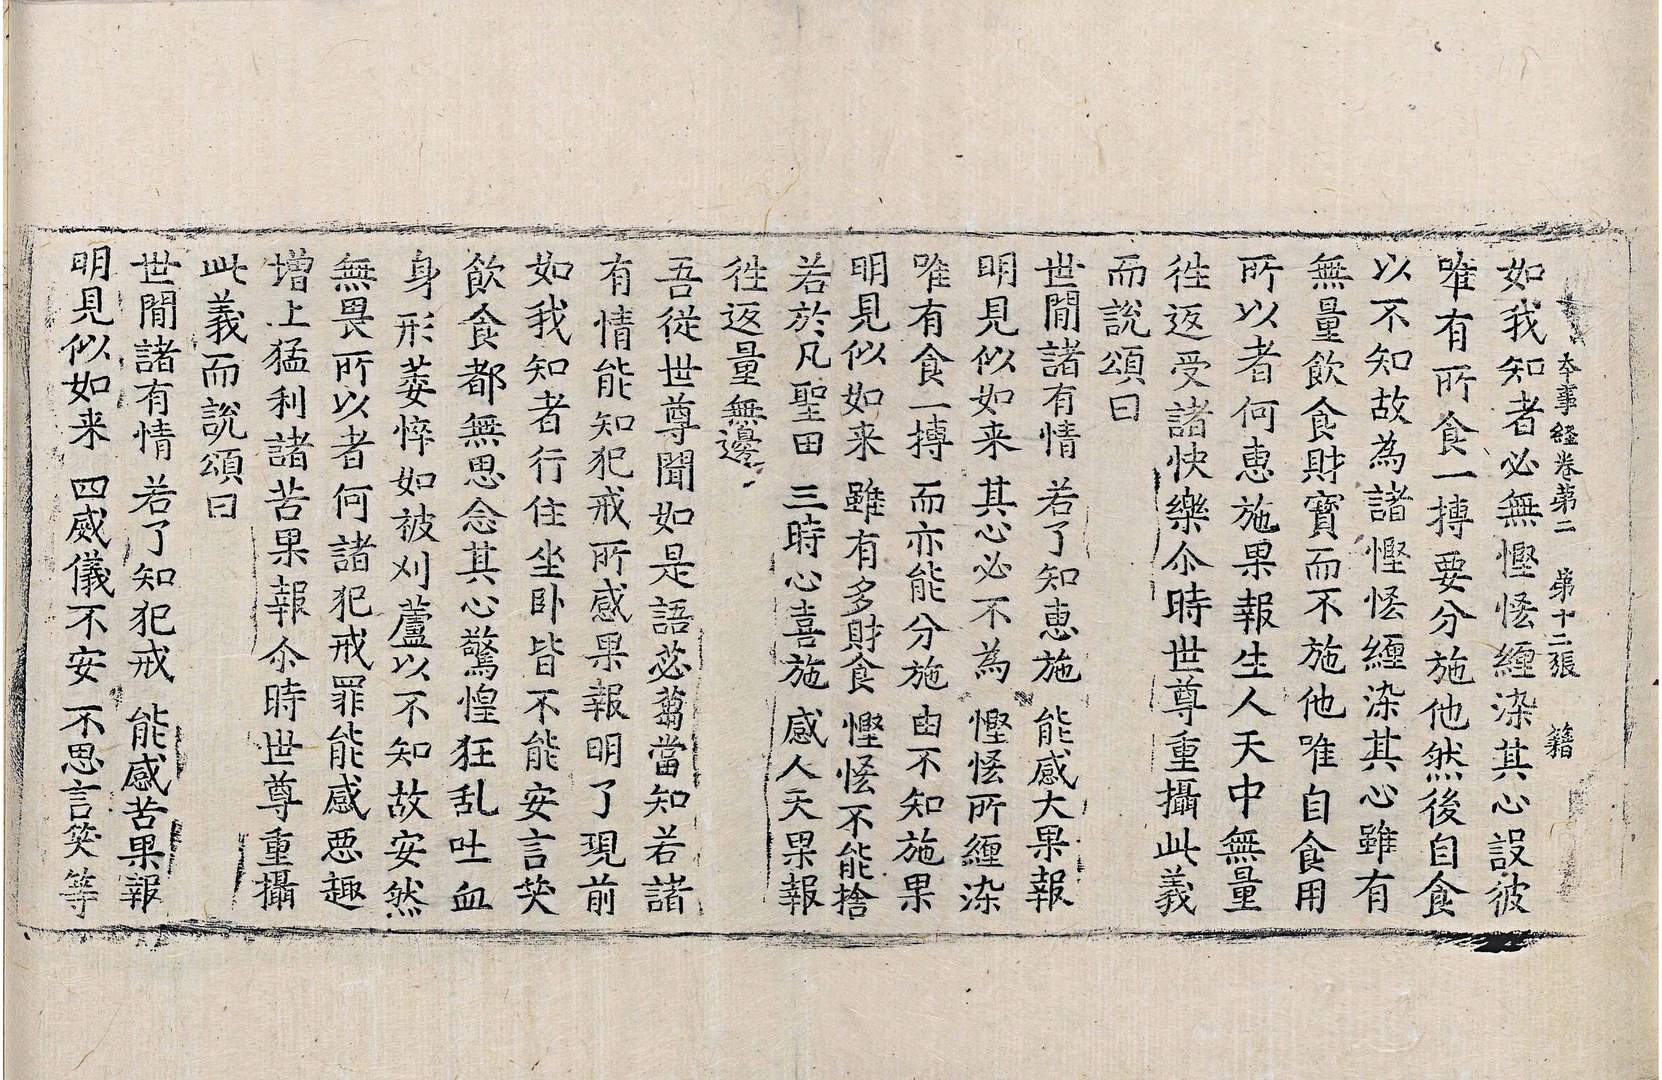 本事經卷第二 第十二張 籍
如我知者必無慳悋纏染其心設彼
唯有所食一摶要分施他然後自食
以不知故為諸慳悋纏染其心雖有
無量飲食財寳而不施他唯自食用
所以者何惠施果報生人天中無量
徃返受諸快樂尒時世尊重攝此義
而說頌曰
世間諸有情 若了知惠施 能感大果報
明見似如来 其心必不為 慳悋所纏染
唯有食一摶 而亦能分施 由不知施果
明見似如来 雖有多財食 慳悋不能捨
若於凡聖田 三時心喜施 感人天果報
徃返量無邊
吾從世尊聞如是語苾蒭當知若諸
有情能知犯戒所感果報明了現前
如我知者行住坐卧皆不能安言笑
飲食都無思念其心驚惶狂乱吐血
身形萎悴如被刈蘆以不知故安然
無畏所以者何諸犯戒罪能感惡趣
增上猛利諸苦果報尒時世尊重攝
此義而說頌曰
世間諸有情 若了知犯戒 能感苦果報
明見似如来 四威儀不安 不思言笑等